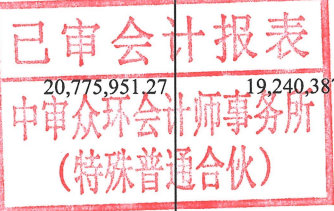 已审会计报表
20,775,951.27 19,240,387
中审众环会计师事务所
(特殊普通合伙)